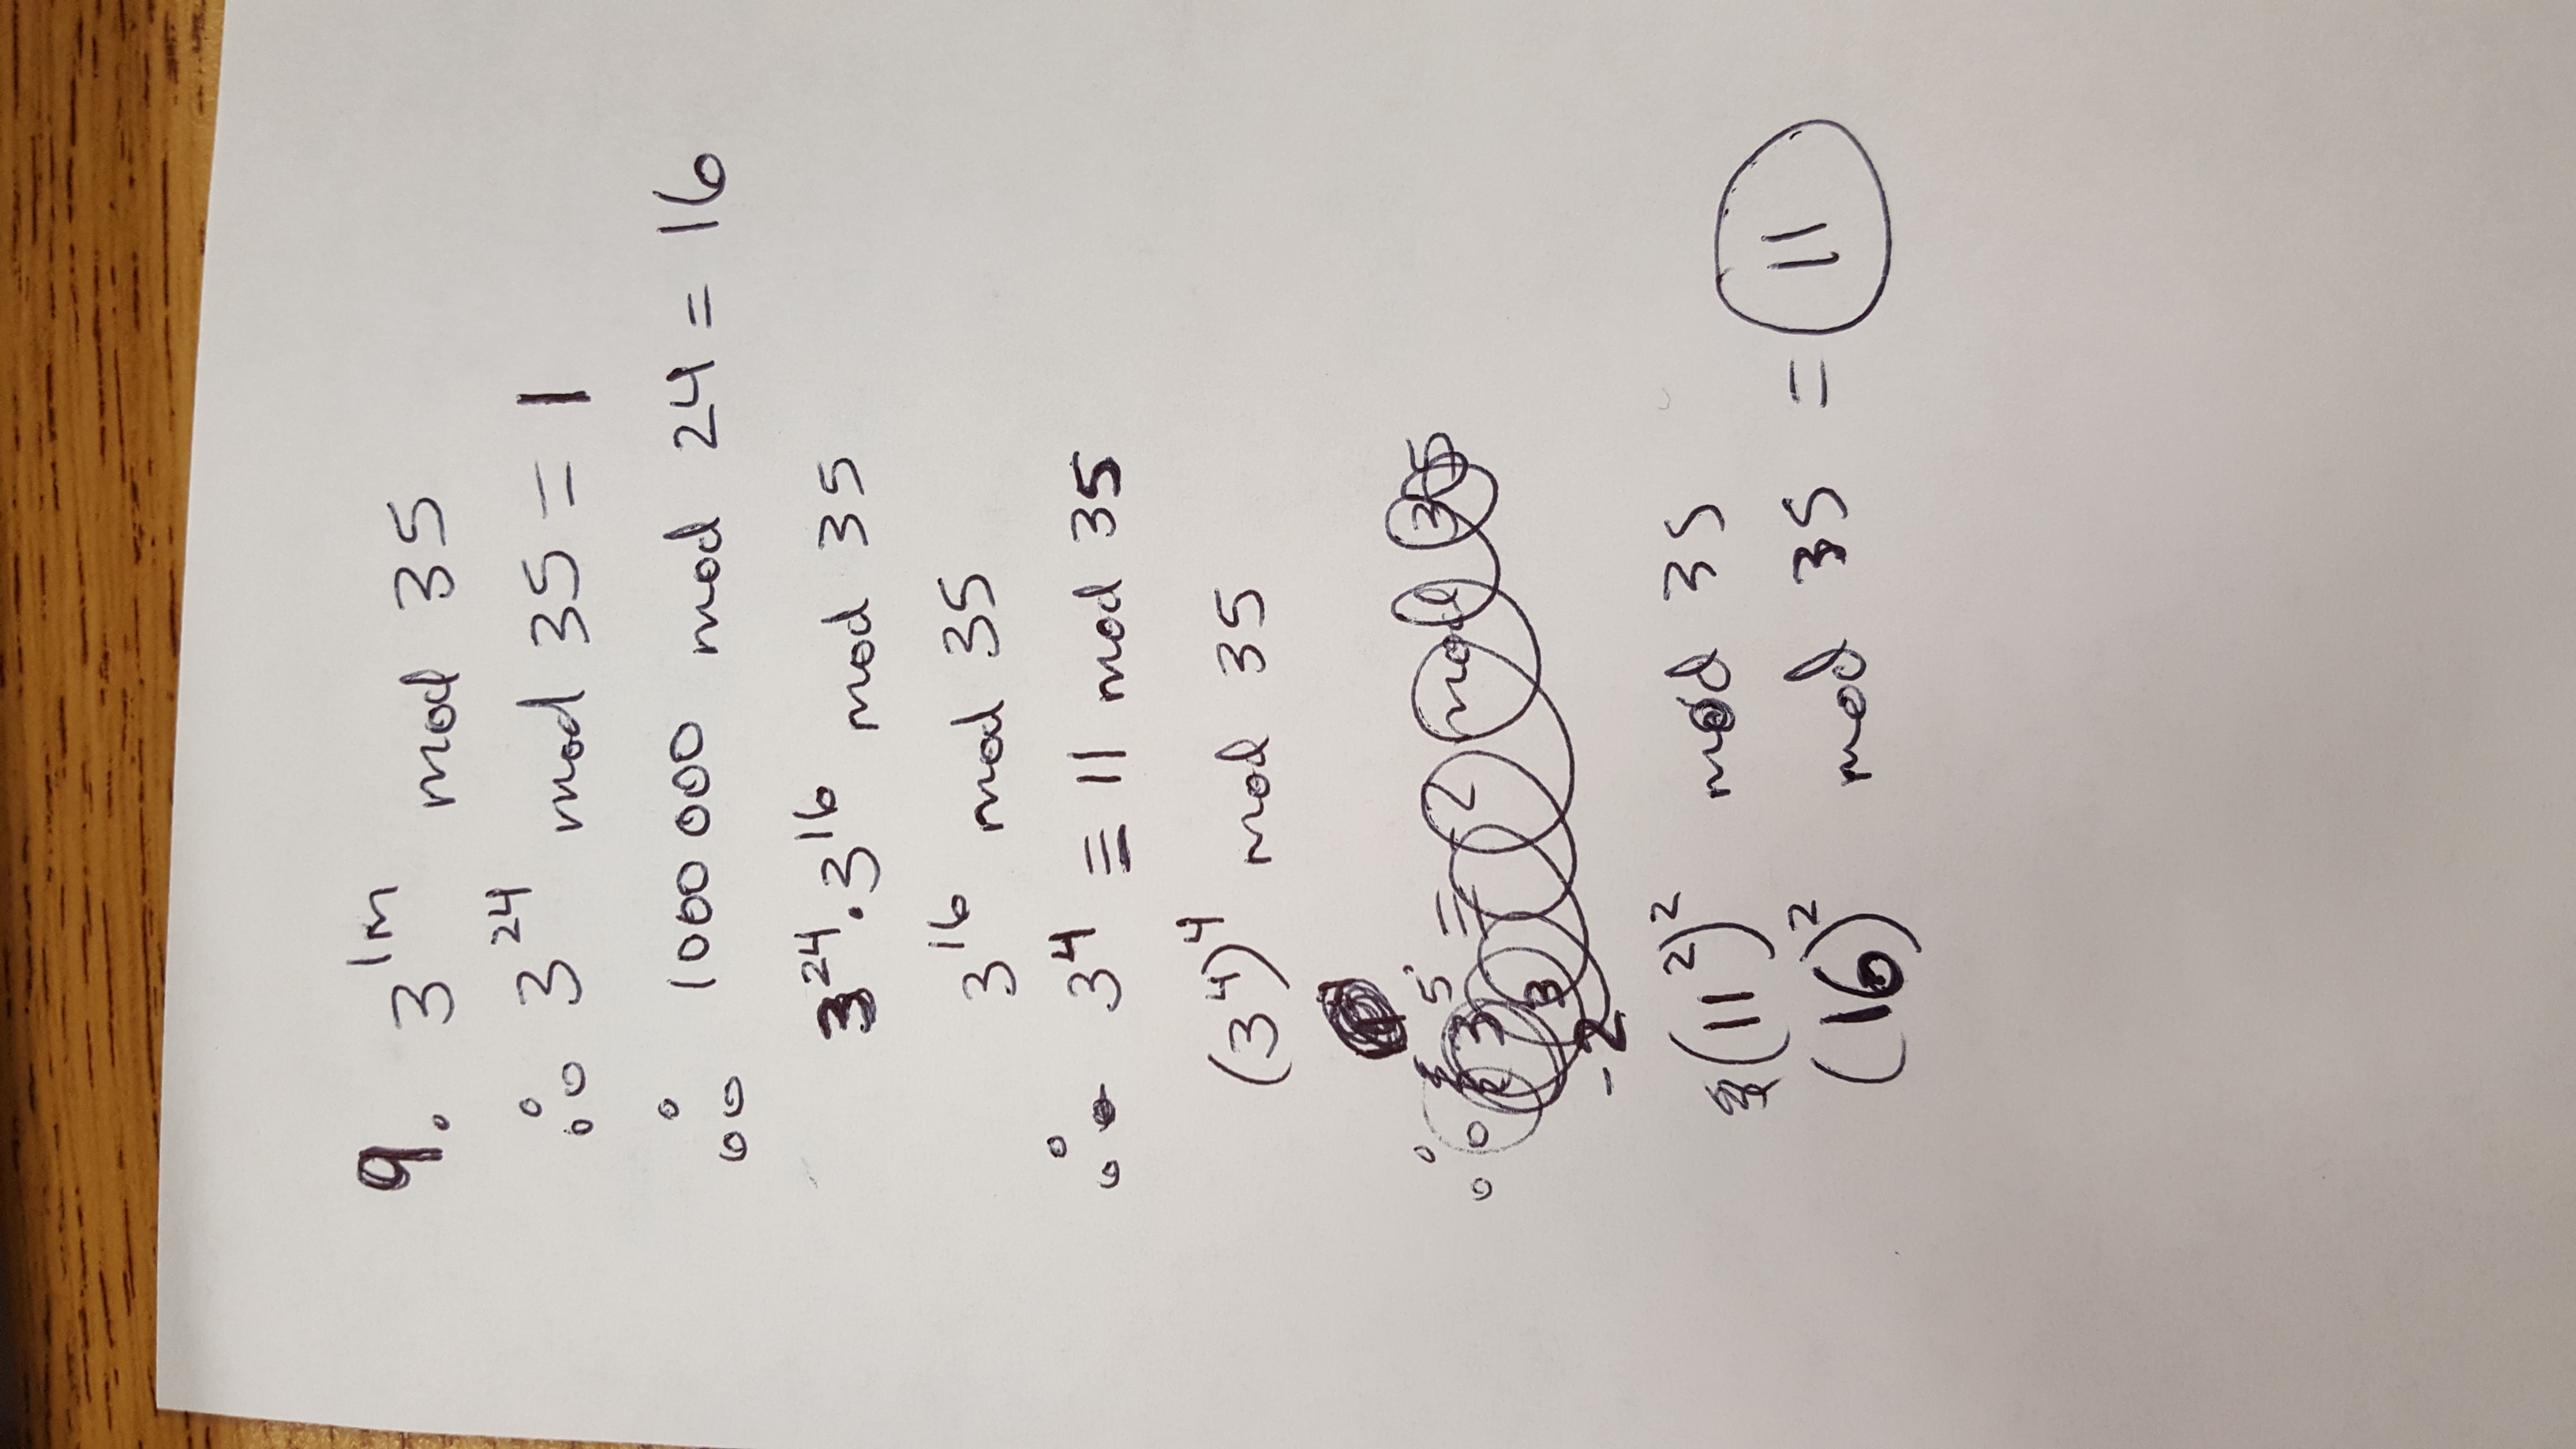 9. 3^1m mod 35
∴ 3^24 mod 35 = 1
∴ 1000 000 mod 24 = 16
3^24 · 3^16 mod 35
3^16 mod 35
∴ 3^4 ≡ 11 mod 35
(3^4)^4 mod 35
∴ 3 5 ≡ 2 mod 35
3
-2
(11^2)^2 mod 35
(16)^2 mod 35 = 11